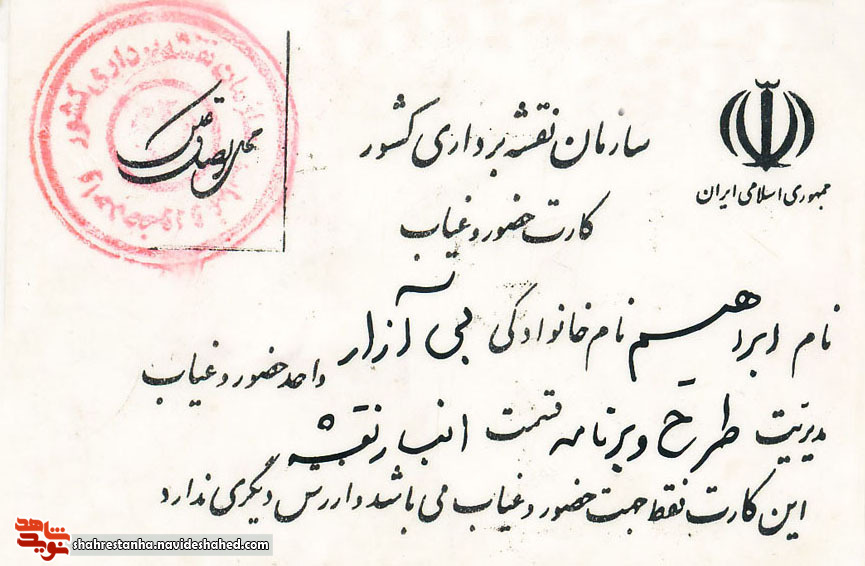 جمهوری اسلامی ایران
سازمان نقشه برداری کشور
کارت حضور و غیاب
محل الصاق عکس
سازمان نقشه برداری کشور
واحد حضور و غیاب
نام ابراهیم نام خانوادگی بی آزار
واحد حضور و غیاب
مدیریت طرح و برنامه قسمت انبار نقشه
این کارت فقط جهت حضور و غیاب می باشد و ارزس دیگری ندارد
نوید شاهد
shahrestanha.navideshahed.com